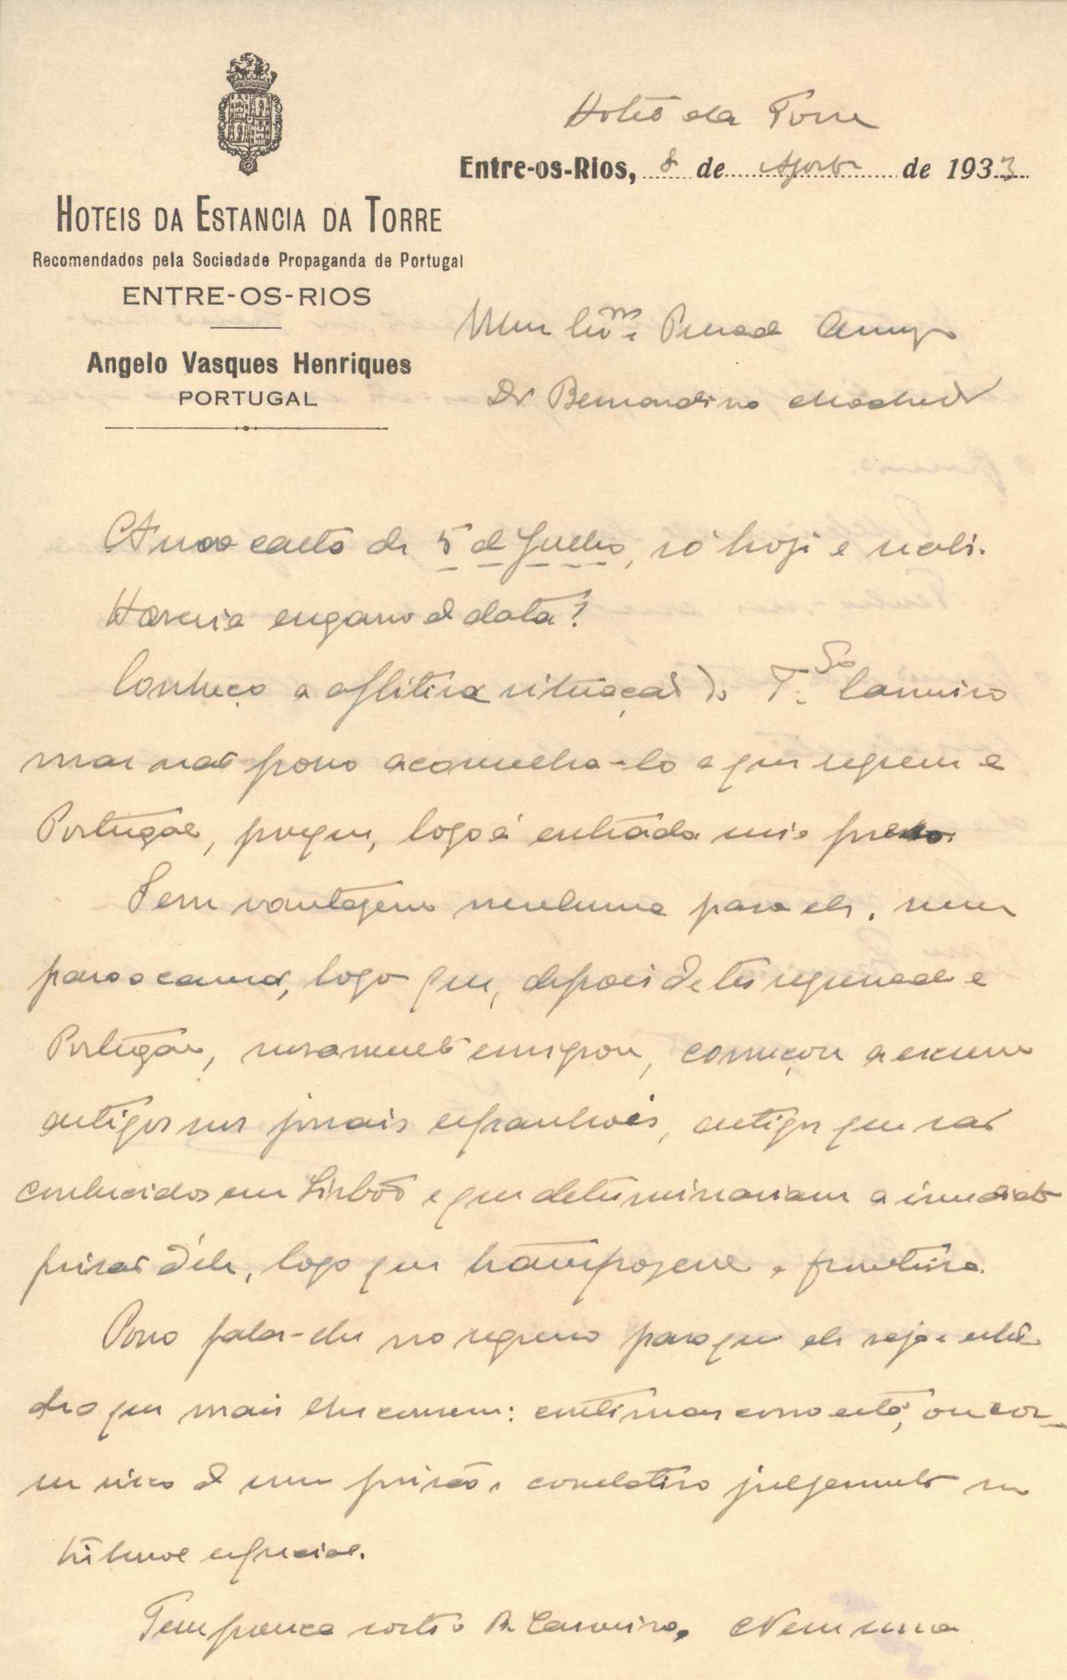 Hotel da Torre
Entre-os-Rios, 8 de Agosto de 1933
HOTEIS DA ESTANCIA DA TORRE
Recomendados pela Sociedade Propaganda de Portugal
ENTRE-OS-RIOS
Angelo Vasques Henriques
PORTUGAL
Meu Amigo
Dr Bernardino Machado
A sua carta de 5 de Julho, só hoje a recebi.
Haveria engano de data?
Conheço a aflitiva situação do T. Carneiro
mas não posso aconselha-lo a que regresse a
Portugal, porque, logo á entrada seria preso.
Sem vantagem nenhuma para ele, nem
para a causa, logo que, depois de ter regressado a
Portugal, novamente emigrou, começou a escrever
artigos nos jornais espanhois, artigos que são
conhecidos em Lisboa e que determinariam a imediata
prisão d'ele, logo que transpozesse a fronteira.
Posso falar-lhe no regresso para que ele veja e
o que mais lhe convem: continuar como está, ou cor-
rer o risco de uma prisão e correlativo julgamento no
tribunal especial.
Tem pouca sorte o Carneiro. Nem uma